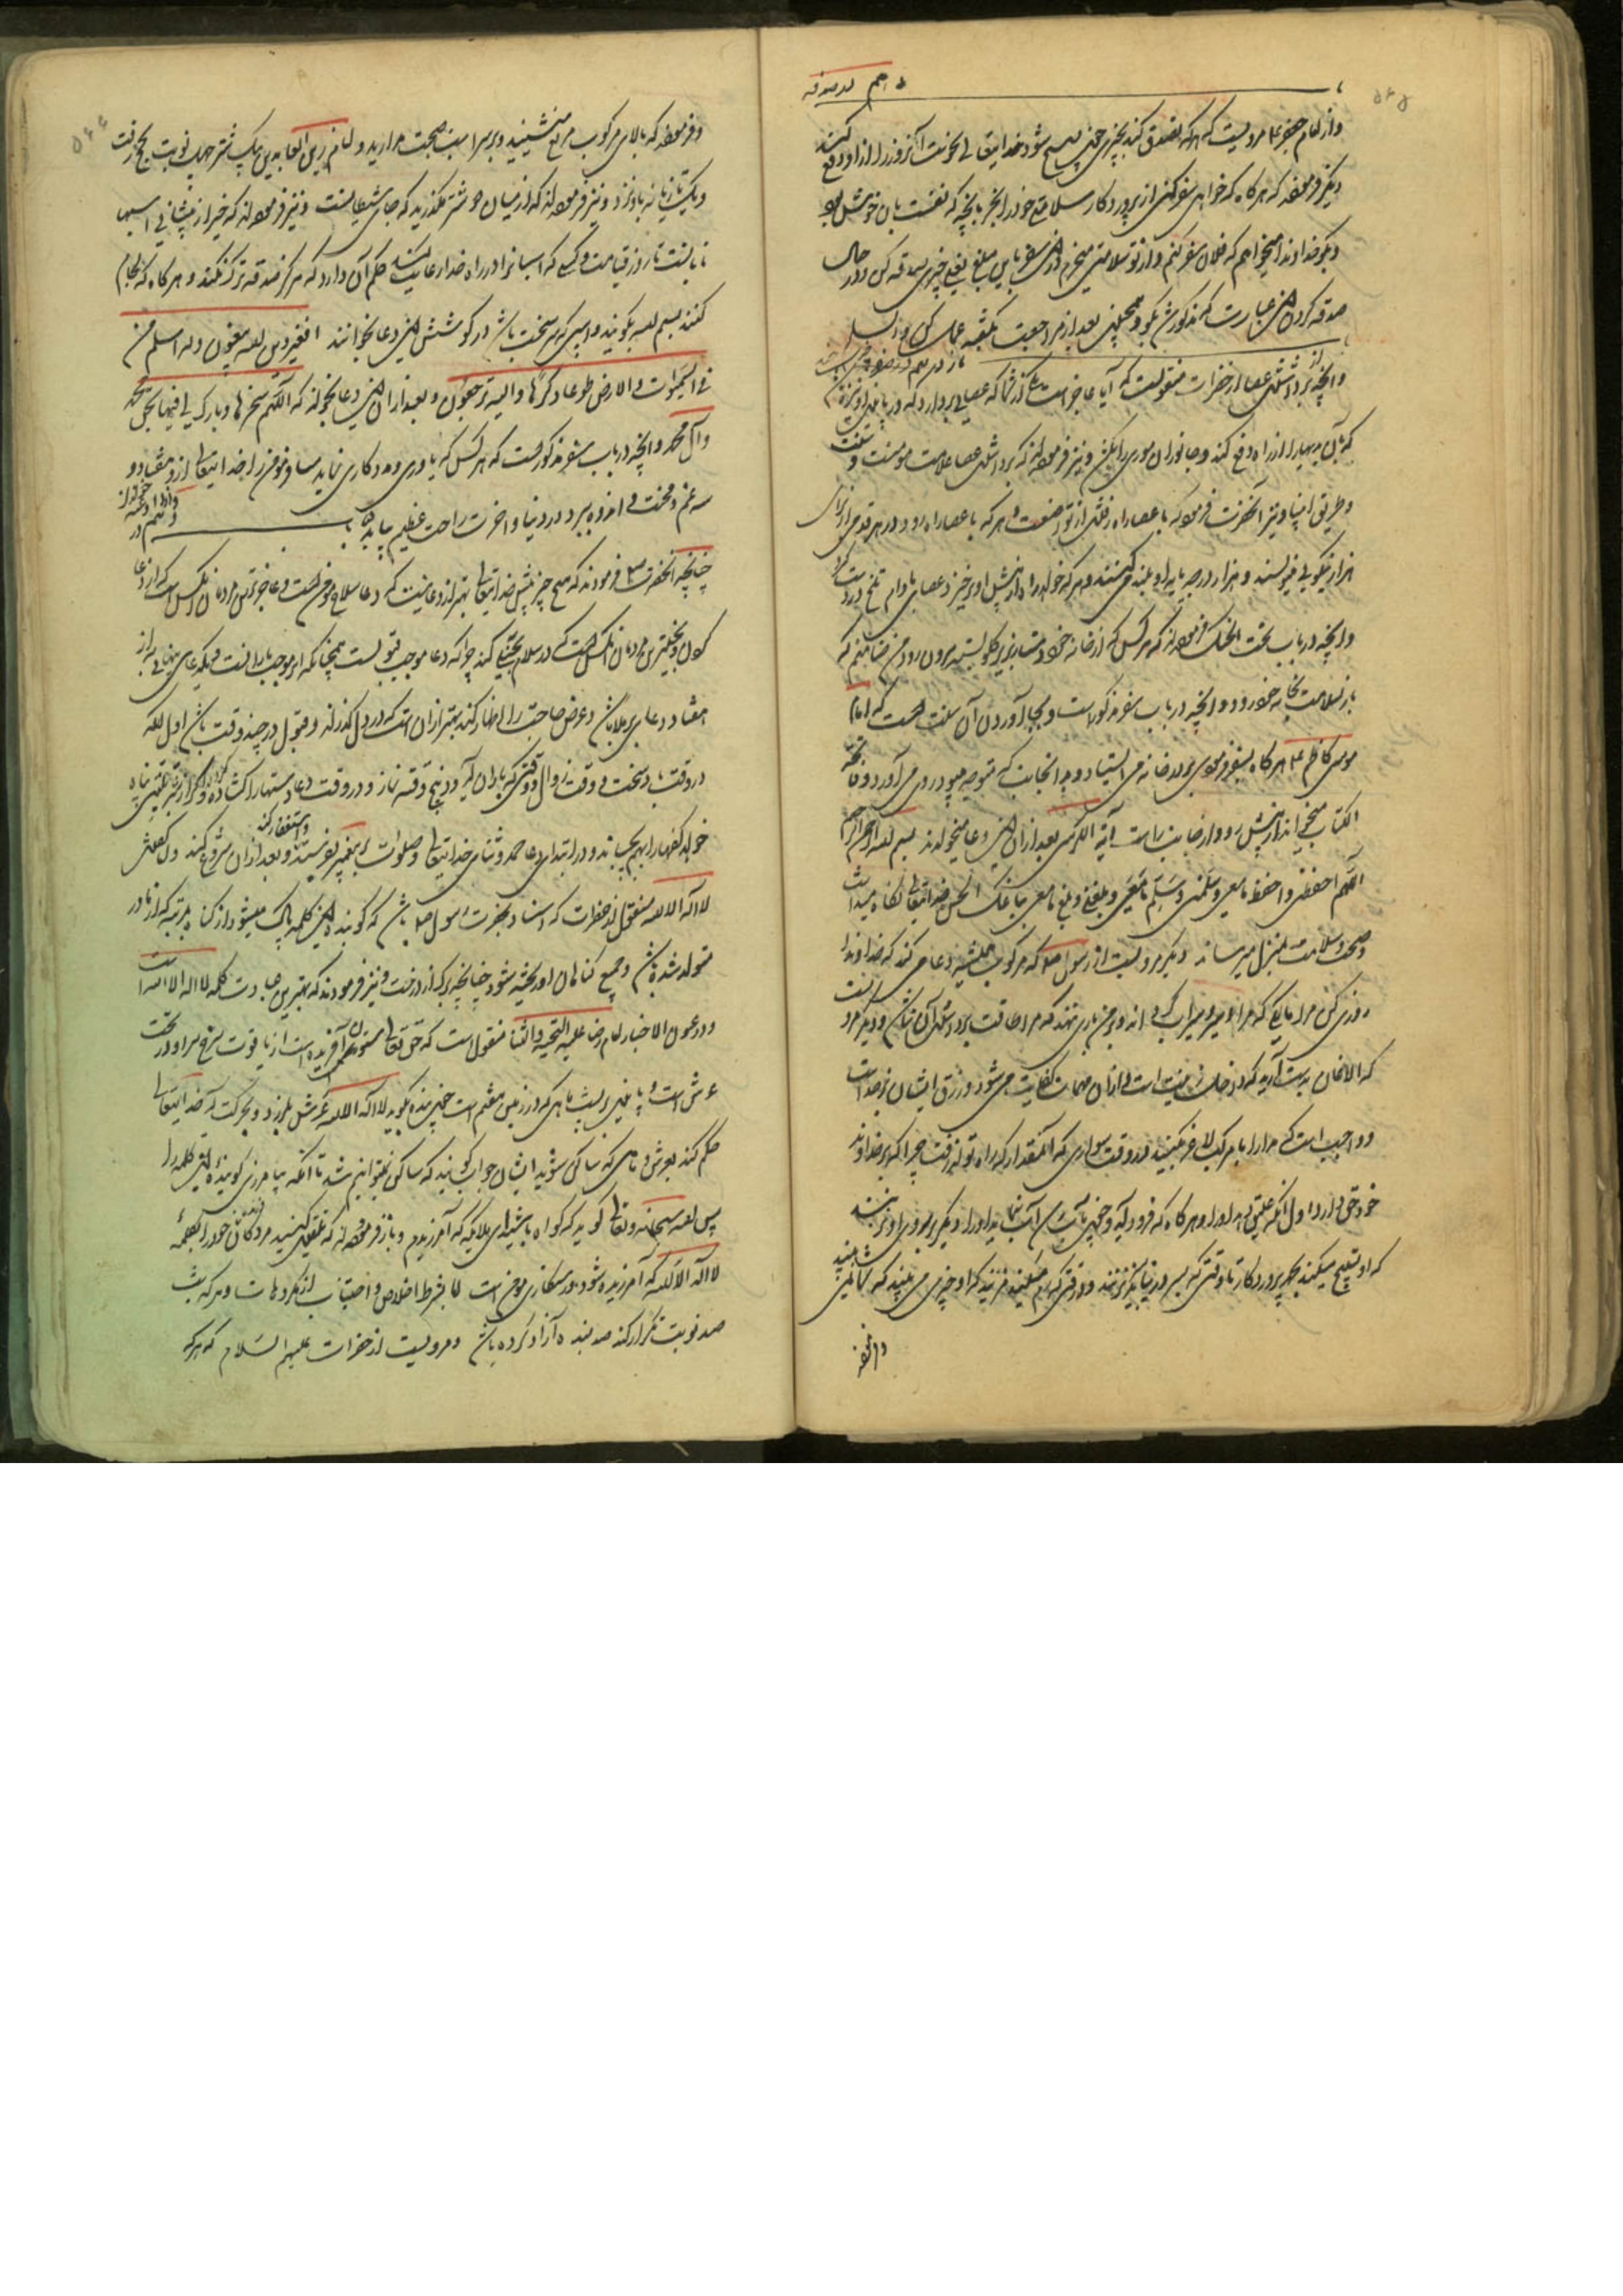 دهم در صدقه
و از امام جعفر ع مرویست که هرکه تصدق کند بچیزی چون صبح شود خدایتعالی نحوست آنروز را از او دفع کند
دیگر فرموده که هرگاه که خواهی سفر کنی از پروردگار سلامتی خود را بخر بآنچه که نفست بآن خوش بود
و بگو خداوندا میخواهم که فلان سفر کنم و از تو سلامتی میخرم در این سفر باین مبلغ یعنی چیزی صدقه کن و در حال
صدقه کردن این عبارت که مذکور شد بگو و همچنین بعد از مراجعت عمل کن
یازدهم در
و آنچه در برداشتن عصا از حضرات منقولست که آیا عاجز است از شما که عصایی بردارد که در پایین او نیزه
که بآن را از راه دفع کند و جانوران موذی را بکشد و نیز فرموده‌اند که برداشتن عصا علامت مومنست و سنت
و طریق انبیا و نیز آنحضرت فرموده که با عصا راه رفتن از تواضعست و هر که با عصا راه رود در هر قدمی از برای او
هزار نیکویی نویسند و هزار درجه پایه او بلند کنند و هر که خواهد راه از پیش او برخیزد عصای بادام تلخ در دست گیرد
و آنچه در باب تحت الحنک فرموده‌اند که هر کس که از خانه خود دستار بزیر گلو بسته بیرون رود من ضامنم که
باز بسلامت بخانه خود رود و آنچه در باب سفر مذکور است و بجا آوردن آن سنت است که امام
موسی کاظم ع هرگاه بسفر فرمودی بر در خانه می ایستاد و بآنجانب که متوجه میبود رو می آورد و فاتحة
الکتاب میخواند از پیش رو و از جانب راست آیة الکرسی بعد از آن این دعا میخواند بسم الله الرحمن الرحیم
اللهم احفظنی و احفظ ما معی و سلمنی و سلم ما معی و بلغنی و بلغ ما معی ببلاغک الحسن خدایتعالی نگاه میداشت
و صحت و سلامت بمنزل میرساند دیگر مرویست از رسول ص که مرکوب همیشه دعا می کند که خداوندا
روزی کن مرا مالکی که مرا سیر و سیراب گرداند و بر من باری ننهد که مرا طاقت برداشتن آن نباشد و دیگر فرمود
که الاغان بدست آرید که در خانه زینت است و از آن مهمات کفایت می شود و رزق ایشان بر خداست
و واجب است که مدارا با مرکب لاغر بکنید در وقت سواری که آنمقدار که راه تواند رفت چرا که بر خداوند
خود حق دارد اول آنکه علیق دهد او را و هرگاه که فرود آید و چون بآب رسد آب بنماید او را دیگر بر روی او نزنند
که او تسبیح میکند بحمد پروردگار تا وقتی که بسر در نیاید نزنند و وقتی که رم میکند مزنید که او چیزی می بیند که شما نمی بینید
و فرموده
و فرموده که بالای مرکوب مربع منشینید و بر سر اسب صحبت مدارید و امام زین العابدین بیک شتر چهل نوبت بحج رفت
و یک تازیانه باو نزد و نیز فرموده‌اند که از میان دو شتر مگذرید که جای شیطانست و نیز فرموده‌اند که خیر از پیشانی اسبها
تابانست تا روز قیامت و کسی که اسبان را در راه خدا رعایت کند حکم آن دارد که هرگز صدقه ترک نکند و هرگاه که لجام
کنند بسم الله بگویند و اسبی که سخت باشد در گوشش این دعا بخوانند افغیر دین الله یبغون و له اسلم من
فی السموات و الارض طوعا و کرها و الیه ترجعون و بعد از آن این دعا بخواند که اللهم سخرها و بارک لی فیها بحق محمد
و آل محمد و آنچه در باب سفر مذکورست که هر کس که یاوری و مددکاری نماید مسافر مومن را خدایتعالی ازو هفتاد و
سه غم و محنت و اندوه ببرد و در دنیا و آخرت راحت عظیم بیابد
چنانچه آنحضرت ص فرمودند که هیچ چیز پیش خدایتعالی بهتر از دعا نیست که دعا سلاح مومن است و عاجزترین مردمان آنکس است که از دعا
کردن و بخیلترین مردمان آنکس است که در سلام بخیلی کند چرا که دعا موجب قبولست همچنانکه ابر موجب بارانست و یک دعای پنهانی به از
هفتاد دعای برملا باشد و عرض حاجت را اظهار کند بهتر از آنست که در دل گذراند و قبول در چند وقت باشد اول آنکه
در وقت باد سخت و وقت زوال و وقتی که باران آید و در پنج وقت نماز و در وقت دعا دستها را گشاده دارد و اگر از شر پناه
خواهد کفها را بهم چسپاند و در ابتدای دعا حمد و ثنای خدایتعالی و صلوات بر پیغمبر بفرستد و استغفار کند و بعد از آن شروع کند و در گفتن
لا اله الا الله منقول از حضرات که اسناد بحضرت رسول ص باشد که گوینده این کلمه پاک میشود از گناه بمرتبه که از مادر
متولد شده باشد و جمیع گناهان او ریخته شود چنانچه برگ از درخت و نیز فرمودند که بهترین عبادت کلمه لا اله الا الله است
و در عیون الاخبار امام رضا علیه التحیه و الثنا منقول است که حق تعالی ستونی آفریده است از یاقوت سرخ سر او در تحت
عرش است و پایین بر پشت ماهی که در زمین هفتم است چون بنده بگوید لا اله الا الله عرش بلرزد و بحرکت آید خدایتعالی
حکم کند بعرش و ماهی که ساکن شوید ایشان جواب گویند که ساکن نتوانیم شد تا آنکه بیامرزی گوینده این کلمه را
پس الله سبحانه و تعالی گوید که گواه باشید ای ملایکه که آمرزیدم و باز فرموده‌اند که تلقین کنید مردگان خود را بکلمهٔ
لا اله الا الله که آمرزیده شود و رستگاری مومن است اما بشرط اخلاص و اجتناب از مکروهات و هر که بشب
صد نوبت تکرار کند صد بنده آزاد کرده باشد و مرویست از حضرات علیهم السلام که هرکه